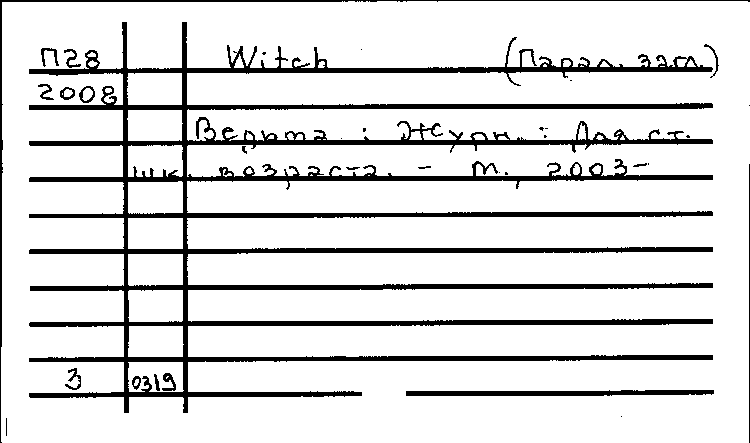 П28 Witch (Парал. загл.)
2008
Ведьма : Журн. : Для ст.
шк. возраста. - М., 2003-
3 0319